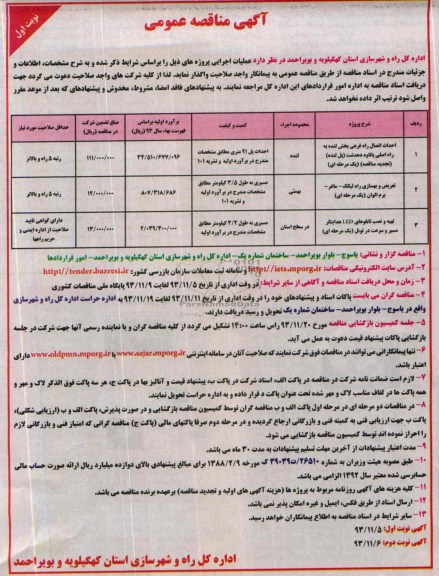 نوبت اول
آگهی مناقصه عمومی
اداره کل راه و شهرسازی استان کهگیلویه و بویراحمد در نظر دارد عملیات اجرایی پروژه های ذیل را براساس شرایط ذکر شده و به شرح مشخصات، اطلاعات و
جزئیات مندرج در اسناد مناقصه از طریق مناقصه عمومی به پیمانکار واجد صلاحیت واگذار نماید. لذا از کلیه شرکت های واجد صلاحیت دعوت می گردد جهت
دریافت اسناد مناقصه به اداره امور قراردادهای این اداره کل مراجعه نمایند. به پیشنهادهای فاقد امضاء، مشروط، مخدوش و پیشنهادهای که بعد از موعد مقرر
واصل شود ترتیب اثر داده نخواهد شد.
ردیف شرح پروژه محدوده اجراء کمیت و کیفیت برآورد اولیه براساس فهرست بهاء سال ۹۳ (ریال) مبلغ تضمین شرکت در مناقصه (ریال) حداقل صلاحیت مورد نیاز
۱ احداث اتصال راه فرعی بخش لنده به راه اصلی پاتاوه دهدشت (پل لنده) (تجدید مناقصه) (یک مرحله ای) لنده احداث پل ۹۱ متری مطابق مشخصات مندرج در برآورد اولیه و نشریه ۱۰۱ ۲۴/۵۱۰/۶۷۷/۰۹۶ ۱۱۱/۰۰۰/۰۰۰ رتبه ۵ راه و بالاتر
۲ تعریض و بهسازی راه لیکک - ماغر - برم الوان (یک مرحله ای) بهمئی مسیری به طول ۳/۵ کیلومتر مطابق مشخصات مندرج در برآورد اولیه و نشریه ۱۰۱ ۸۰۷/۳۱۸/۶۸۶ ۱۲/۰۰۰/۰۰۰ رتبه ۵ راه و بالاتر
۳ تهیه و نصب تابلوهای LED هدایتگر مسیر و سرعت در تونل (یک مرحله ای) در سطح استان مسیری به طول ۲/۲ کیلومتر مطابق مشخصات مندرج در برآورد اولیه ۲/۰۳۹/۴۰۰/۰۰۰ ۱۳/۰۰۰/۰۰۰ دارای گواهی تایید صلاحیت از اداره ایمنی و حریم راهها
۱- مناقصه گزار و نشانی: یاسوج- بلوار بویراحمد- ساختمان شماره یک- اداره کل راه و شهرسازی استان کهگیلویه و بویراحمد- امور قراردادها
۲- آدرس سایت الکترونیکی مناقصات: http://iets.mporg.ir و سامانه ثبت معاملات سازمان بازرسی کشور: http://tender.bazresi.ir
۳- زمان و محل دریافت اسناد مناقصه و آگاهی از سایر شرایط: از وقت اداری از تاریخ ۹۳/۱۱/۵ لغایت ۹۳/۱۱/۹ پایگاه ملی مناقصات کشوری
۴- مناقصه گران می بایست پاکات اسناد و پیشنهادهای خود را در وقت اداری از تاریخ ۹۳/۱۱/۱۱ لغایت ۹۳/۱۱/۱۹ به اداره حراست اداره کل راه و شهرسازی
واقع در یاسوج- بلوار بویراحمد- ساختمان شماره یک تحویل و رسید دریافت دارند.
۵- جلسه کمیسیون بازگشایی مناقصه مورخ ۹۳/۱۱/۲۰ راس ساعت ۱۴:۰۰ تشکیل می گردد از کلیه مناقصه گران و یا نماینده رسمی آنها جهت شرکت در جلسه
بازگشایی پاکات پیشنهاد قیمت دعوت به عمل می آید.
۶- تنها پیمانکارانی می توانند در مناقصات فوق شرکت نمایند که صلاحیت آنان در سامانه اینترنتی www.sajar.mporg.ir یا www.oldpmn.mporg.ir دارای
اعتبار باشد.
۷- لازم است ضمانت نامه شرکت در مناقصه در پاکت الف، اسناد شرکت در پاکت ب، پیشنهاد قیمت و آنالیز بها در پاکت ج، هر سه پاکت فوق الذکر لاک و مهر و
همه پاکت ها در لفاف مناسب لاک و مهر شده تحت عنوان پاکت د قرار داده و به اداره حراست تحویل نمایند.
۸- در مناقصات دو مرحله ای در مرحله اول پاکت الف و ب مناقصه گران توسط کمیسیون مناقصه بازگشایی و در صورت پذیرش، پاکت الف و ب (ارزیابی شکلی)،
پاکت ب جهت ارزیابی فنی به کمیته فنی و بازرگانی ارجاع گردیده و در مرحله دوم صرفا پاکتهای مالی (پاکت ج) مناقصه گرانی که امتیاز فنی و بازرگانی لازم
را احراز نموده اند توسط کمیسیون مناقصه بازگشایی می شود.
۹- مدت اعتبار پیشنهادات از آخرین مهلت تسلیم پیشنهادات به مدت ۳۰ ماه می باشد.
۱۰- طبق مصوبه هیئت وزیران به شماره ۲۶۵۱۰/ت۳۹۰۳۹ ک مورخه ۱۳۸۸/۲/۹ برای مبالغ پیشنهادی بالای دوازده میلیارد ریال ارائه صورت حساب مالی
حسابرسی شده معتبر سال ۱۳۹۲ الزامی می باشد.
۱۱- کلیه هزینه های آگهی روزنامه مربوط به پروژه ها (هزینه آگهی های اولیه و تجدید مناقصه) برعهده برنده مناقصه می باشد.
۱۲- ارسال اسناد از طریق فکس، ایمیل و غیره امکان پذیر نمی باشد.
۱۳- سایر شرایط در اسناد مناقصه به اطلاع پیمانکاران خواهد رسید.
آگهی نوبت اول: ۹۳/۱۱/۵
آگهی نوبت دوم: ۹۳/۱۱/۶
اداره کل راه و شهرسازی استان کهگیلویه و بویراحمد